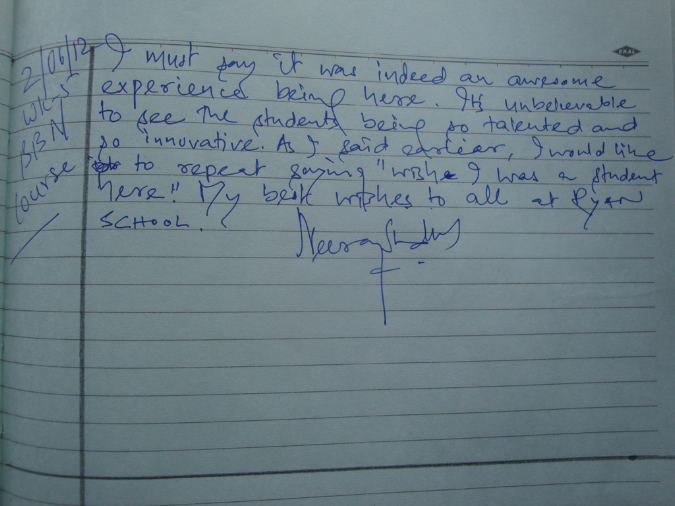 2/06/12
WKS
BBN
course
I must say it was indeed an awesome
experience being here. Its unbelievable
to see the students being so talented and
so innovative. As I said earlier, I would like
to repeat saying "wish I was a student
here". My best wishes to all at Ryan
SCHOOL.
Neeraj